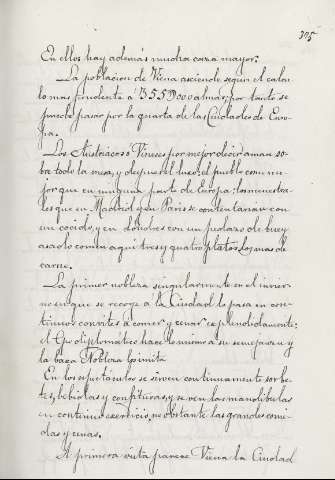 305
En ellos hay además mucha caza mayor.
La poblacion de Viena asciende segun el calcu-
lo mas prudente á 355 000 almas, por tanto se
puede pasar por la quarta de las Ciudades de Euro-
pa.
Los Austriacos o Vieneses por mejor decir aman so-
bre todo la mesa, y despues el luxo: el pueblo come me-
jor que en ninguna parte de Europa; los menestra-
les que en Madrid y en Paris se contentarian con
un cocido, y en Londres con un pedazo de buey
asado comen aqui tres y quatro platos, los mas de
carne.
La primer nobleza singularmente en el invier-
no en que se recoge á la Ciudad lo pasa en con-
tinuos convites á comer y cenar esplendidamente;
el Cpo diplomático hace lo mismo á su semejanza y
la baxa Nobleza los imita.
En los espectáculos se sirven continuamente sorbe-
tes, bebidas y confituras, y se ven las mandibulas
en continuo exercicio, no obstante las grandes comi-
das y cenas.
A primera vista parece Viena la Ciudad